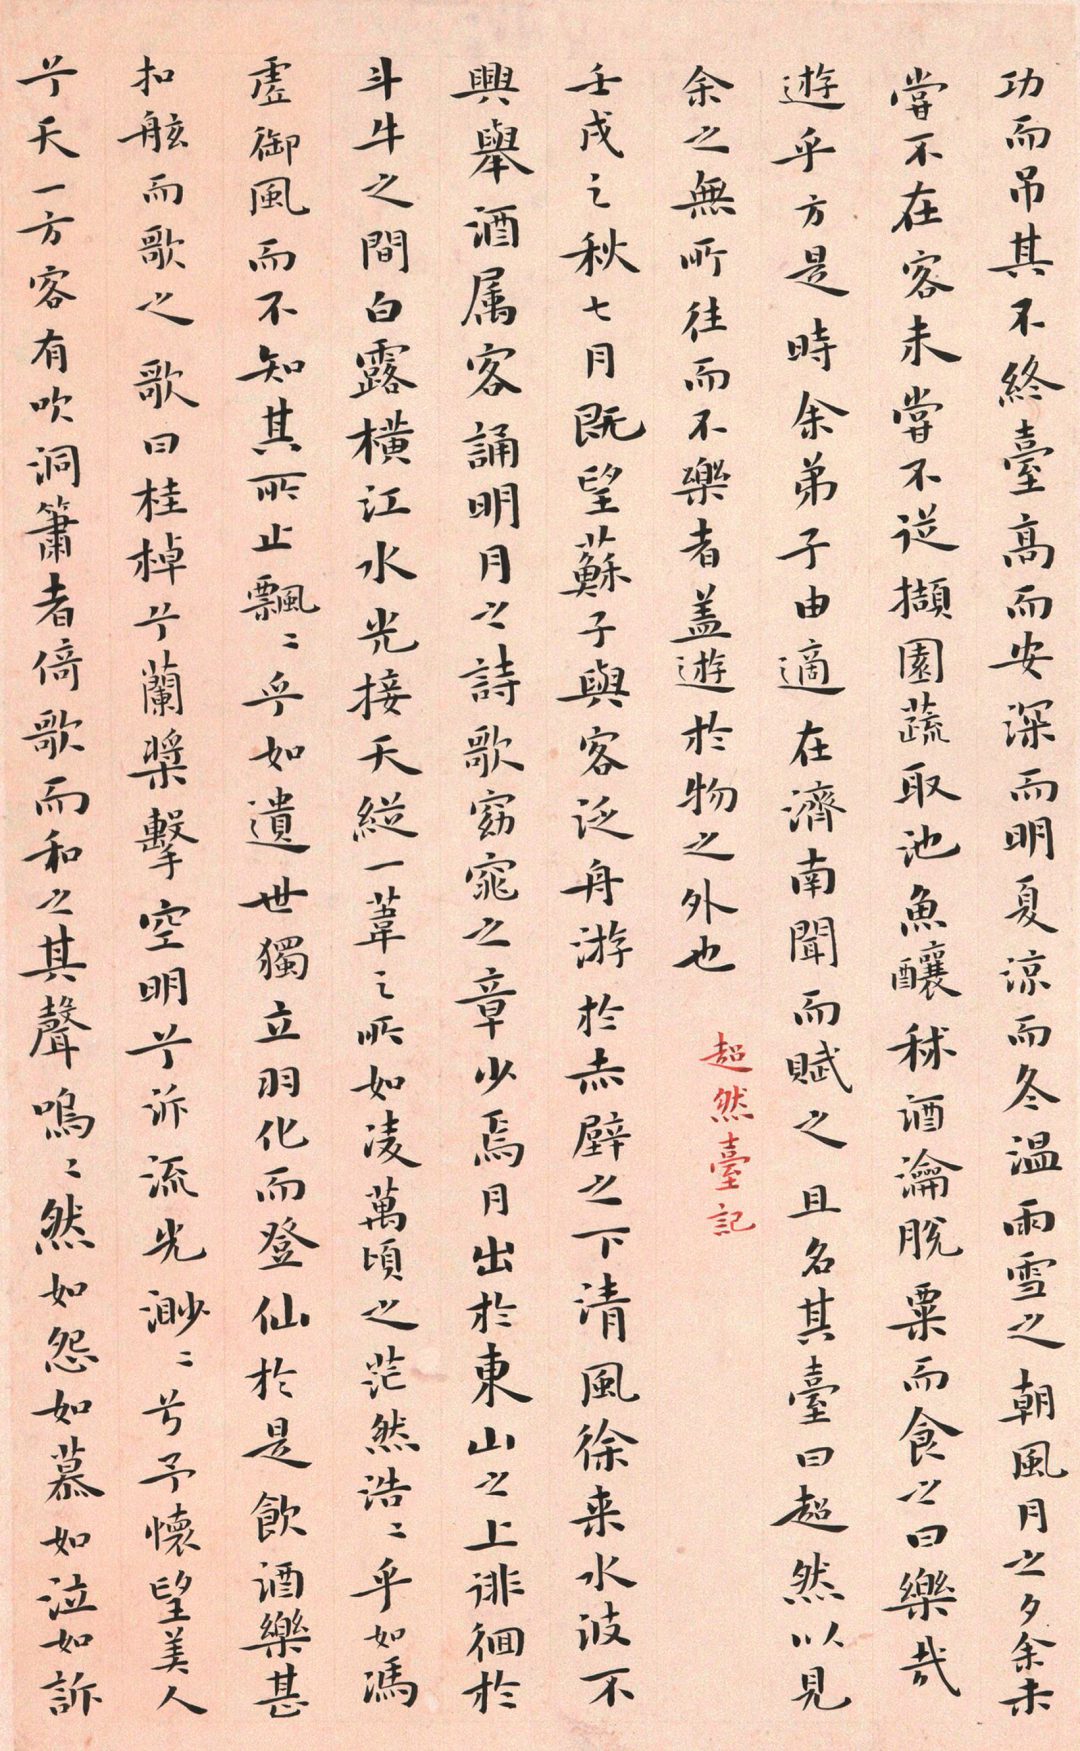 功而吊其不終臺高而安深而明夏涼而冬温雨雪之朝風月之夕余未
嘗不在客未嘗不従擷園蔬取池魚釀秫酒瀹脱粟而食之曰樂哉
遊乎方是時余弟子由適在濟南聞而賦之且名其臺曰超然以見
余之無所往而不樂者盖遊於物之外也
超然臺記
壬戌之秋七月既望蘇子與客泛舟游於赤壁之下清風徐来水波不
興舉酒属客誦明月之詩歌窈窕之章少焉月出於東山之上徘徊於
斗牛之間白露橫江水光接天縱一葦之所如凌萬頃之茫然浩〻乎如馮
虚御風而不知其所止飄〻乎如遺世獨立羽化而登仙於是飲酒樂甚
扣舷而歌之歌曰桂棹兮蘭槳擊空明兮泝流光渺〻兮予懷望美人
兮天一方客有吹洞簫者倚歌而和之其聲嗚〻然如怨如慕如泣如訴